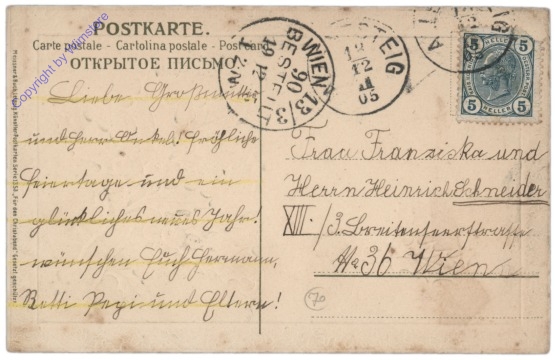 POSTKARTE.
Carte postale - Cartolina postale - Postcard
ОТКРЫТОЕ ПИСЬМО
Copyright by Wimstore
Liebe Großmutter
und Herr Onkel! Fröhliche
Feiertage und ein
glückliches neues Jahr!
wünschen Euch Hermann,
Betti Pepi und Eltern!
WIEN 13/3
90
BESTELLT
STEIG
12
II
05
5 5
HELLER HELLER
5 5
Frau Franziska und
Herrn Heinrich Schneider
XIII./3. Breitenseerstrasse
No 36 Wien
70